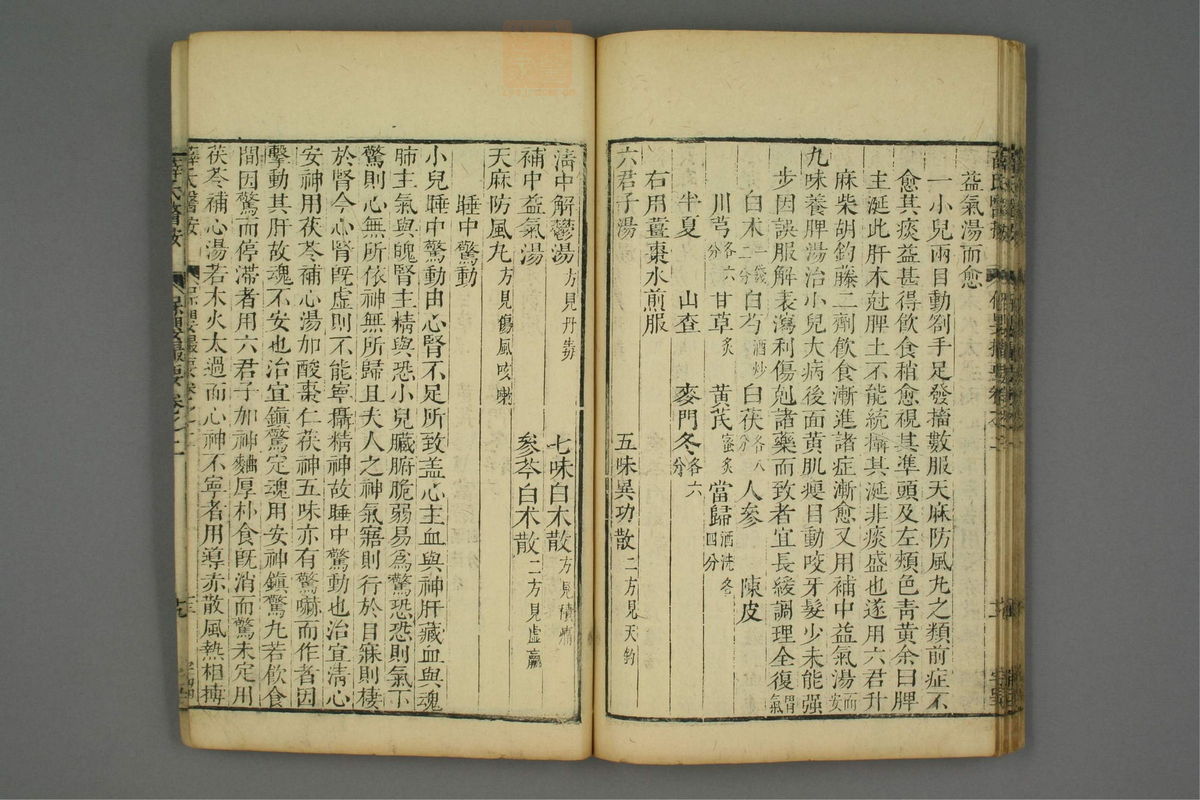 益氣湯而愈
一小兒兩目動劄手足發搐數服天麻防風丸之類前症不
愈其痰益甚得飲食稍愈視其準頭及左頰色青黃余曰脾
主涎此肝木尅脾土不能統攝其涎非痰盛也遂用六君升
麻柴胡鈎藤二劑飲食漸進諸症漸愈又用補中益氣湯而安
九味養脾湯治小兒大病後面黃肌瘦目動咬牙髮少未能强
步因誤服解表瀉利傷剋諸藥而致者宜長緩調理全復胃氣
白术一錢二分 白芍酒炒 白茯各八分 人參 陳皮
川芎各六分 甘草炙 黃芪蜜炙 當歸酒洗各四分
半夏 山查 麥門冬各六分
右用薑棗水煎服
六君子湯 五味異功散二方見天釣
清中解鬱湯方見丹毒 七味白术散方見積痛
補中益氣湯 參苓白术散二方見虛羸
天麻防風丸方見傷風咳嗽
睡中驚動
小兒睡中驚動由心腎不足所致盖心主血與神肝藏血與魂
肺主氣與魄腎主精與恐小兒臟腑脆弱易爲驚恐恐則氣下
驚則心無所依神無所歸且夫人之神氣寤則行於目寐則棲
於腎今心腎旣虛則不能寧攝精神故睡中驚動也治宜淸心
安神用茯苓補心湯加酸棗仁茯神五味亦有驚嚇而作者因
擊動其肝故魂不安也治宜鎭驚定魂用安神鎭驚丸若飲食
間因驚而停滯者用六君子加神麯厚朴食旣消而驚未定用
茯苓補心湯若木火太過而心神不寧者用導赤散風熱相搏
薛氏醫按 保嬰撮要卷之二